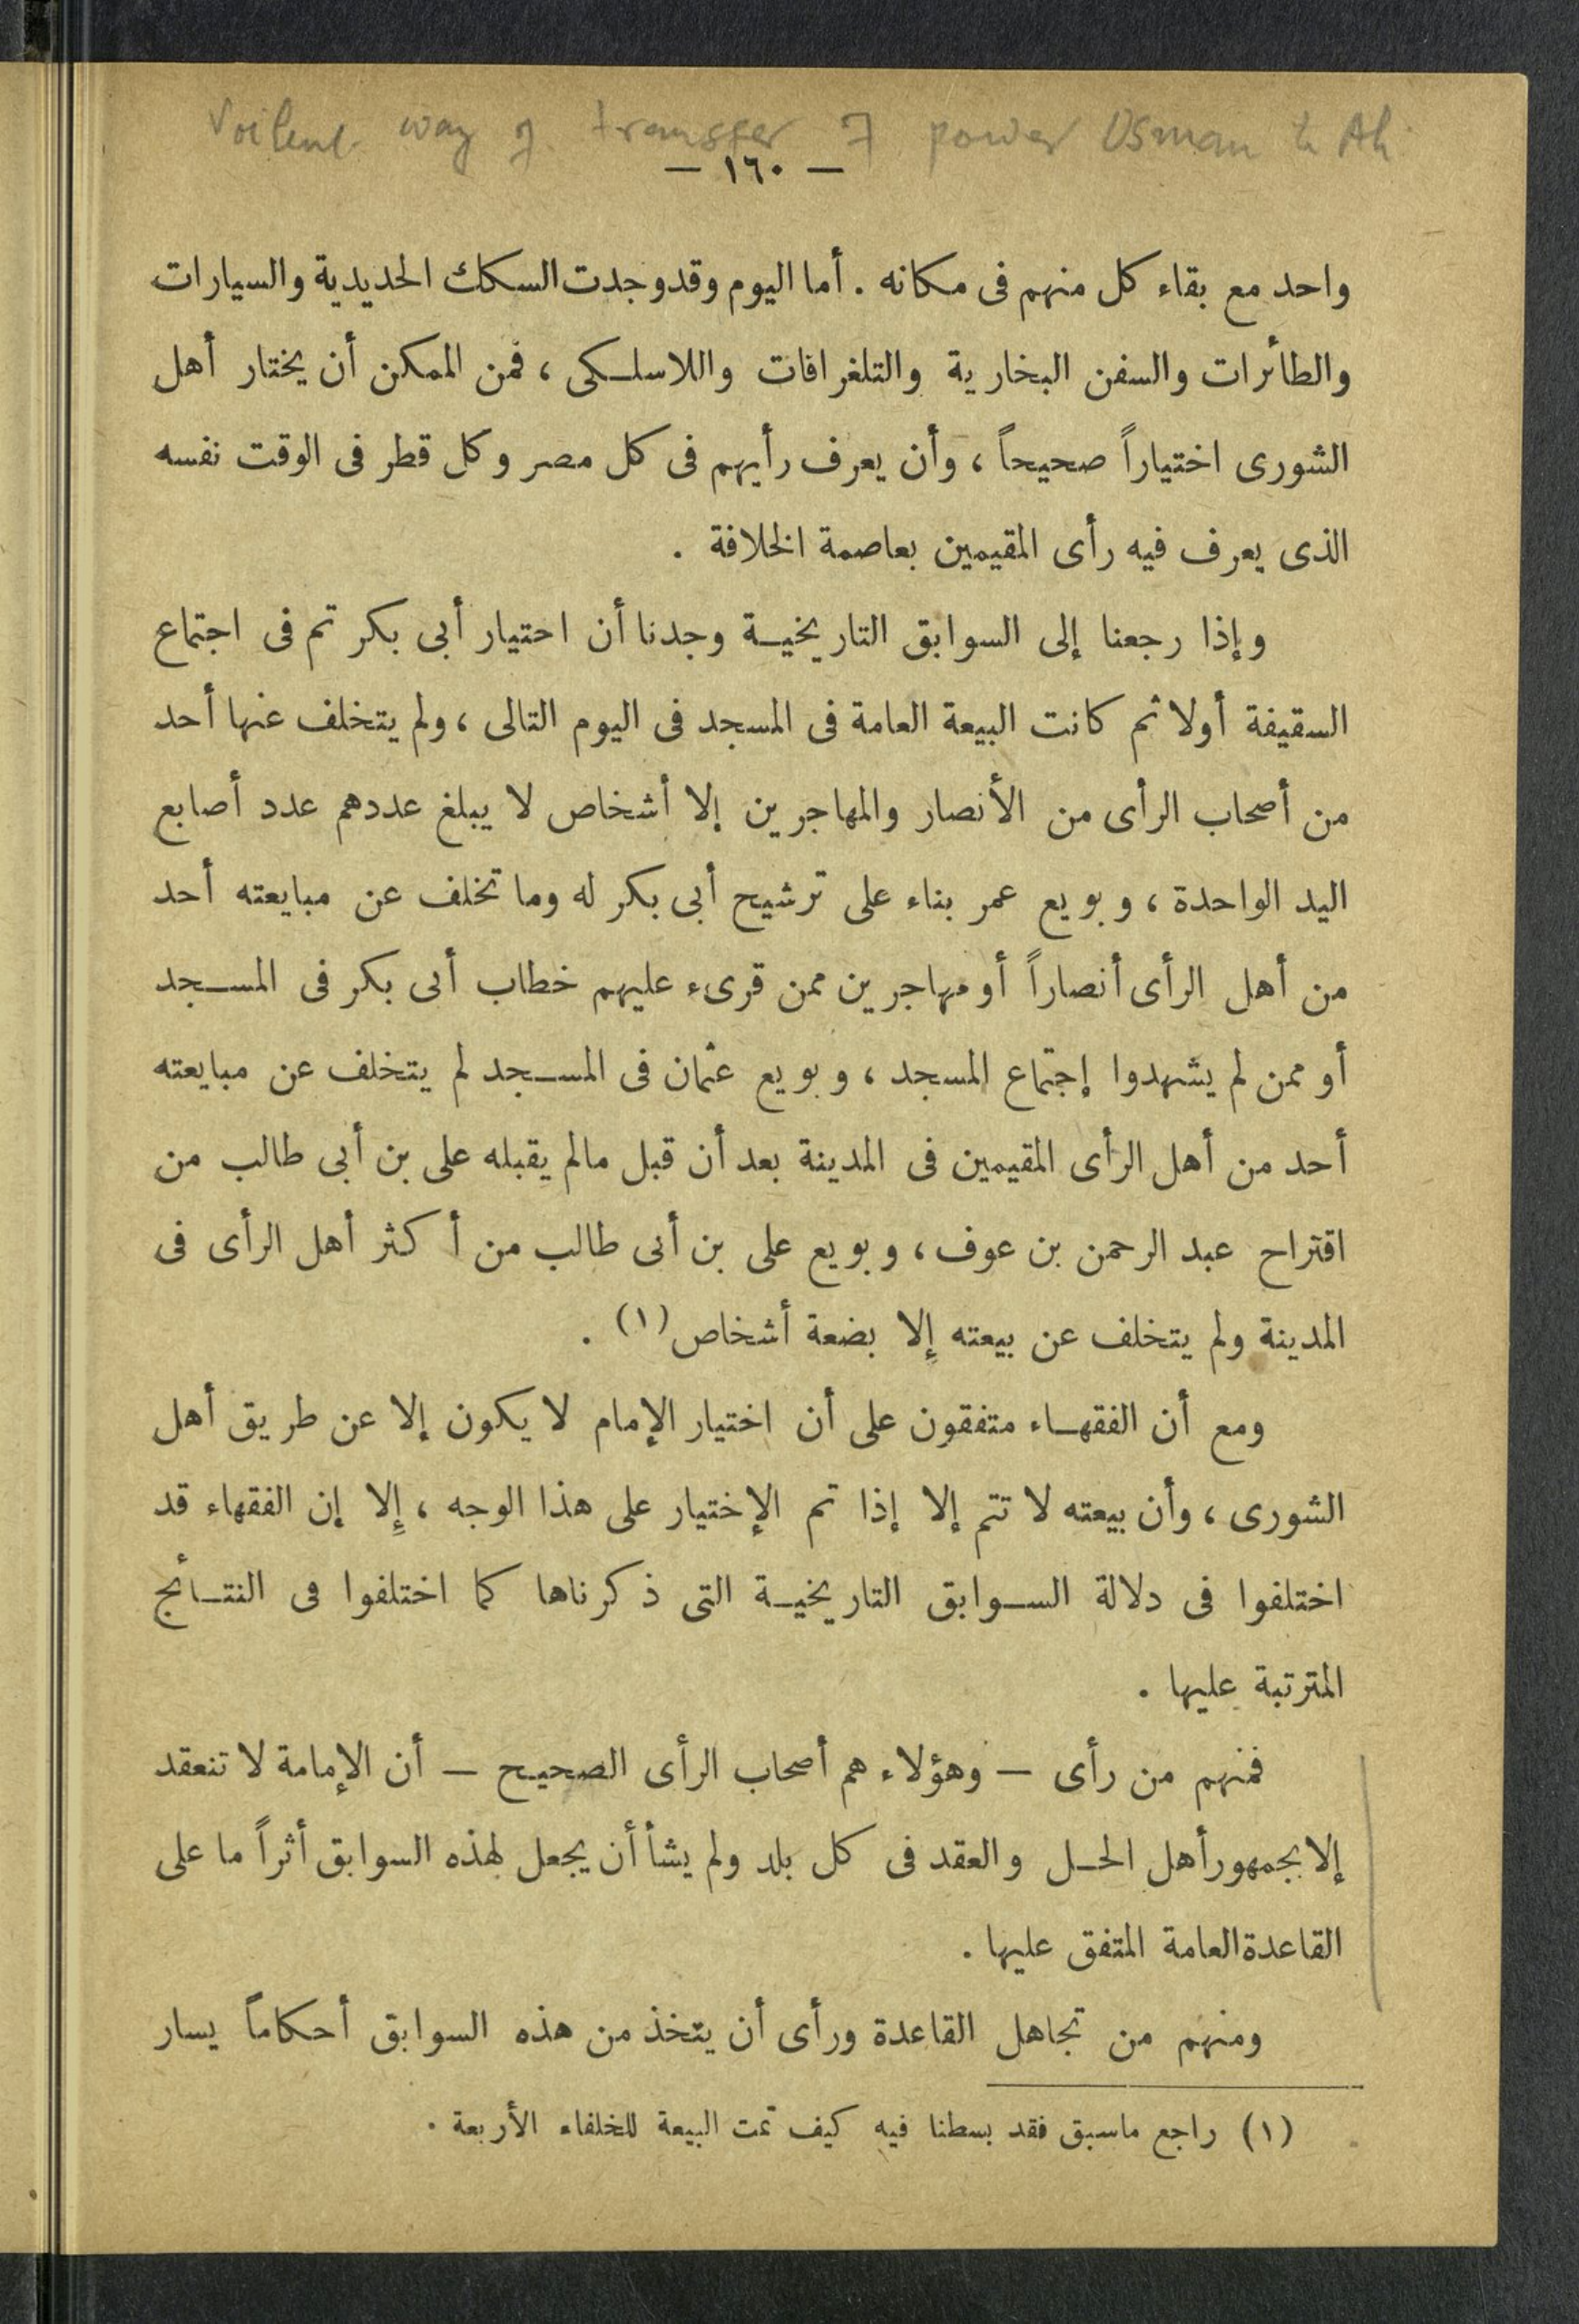 Voilent way of transfer of power Osman to Ali
— ١٦٠ —
واحد مع بقاء كل منهم فى مكانه . أما اليوم وقد وجدت السكك الحديدية والسيارات
والطائرات والسفن البخارية والتلغرافات واللاسلكى ، فمن الممكن أن يختار أهل
الشورى اختياراً صحيحاً ، وأن يعرف رأيهم فى كل مصر وكل قطر فى الوقت نفسه
الذى يعرف فيه رأى المقيمين بعاصمة الخلافة .
وإذا رجعنا إلى السوابق التاريخية وجدنا أن احتيار أبى بكر تم فى اجتماع
السقيفة أولا ثم كانت البيعة العامة فى المسجد فى اليوم التالى ، ولم يتخلف عنها أحد
من أصحاب الرأى من الأنصار والمهاجرين إلا أشخاص لا يبلغ عددهم عدد أصابع
اليد الواحدة ، وبويع عمر بناء على ترشيح أبى بكر له وما تخلف عن مبايعته أحد
من أهل الرأى أنصاراً أو مهاجرين ممن قرىء عليهم خطاب أبى بكر فى المسجد
أو ممن لم يشهدوا إجتماع المسجد ، وبويع عثمان فى المسجد لم يتخلف عن مبايعته
أحد من أهل الرأى المقيمين فى المدينة بعد أن قبل مالم يقبله على بن أبى طالب من
اقتراح عبد الرحمن بن عوف ، وبويع على بن أبى طالب من أكثر أهل الرأى فى
المدينة ولم يتخلف عن بيعته إلا بضعة أشخاص (١) .
ومع أن الفقهاء متفقون على أن اختيار الإمام لا يكون إلا عن طريق أهل
الشورى ، وأن بيعته لا تتم إلا إذا تم الإختيار على هذا الوجه ، إلا إن الفقهاء قد
اختلفوا فى دلالة السوابق التاريخية التى ذكرناها كما اختلفوا فى النتائج
المترتبة عليها .
فمنهم من رأى — وهؤلاء هم أصحاب الرأى الصحيح — أن الإمامة لا تنعقد
إلا بجمهور أهل الحل والعقد فى كل بلد ولم يشأ أن يجعل لهذه السوابق أثراً ما على
القاعدة العامة المتفق عليها .
ومنهم من تجاهل القاعدة ورأى أن يتخذ من هذه السوابق أحكاماً يسار
(١) راجع ماسبق فقد بسطنا فيه كيف تمت البيعة للخلفاء الأربعة .